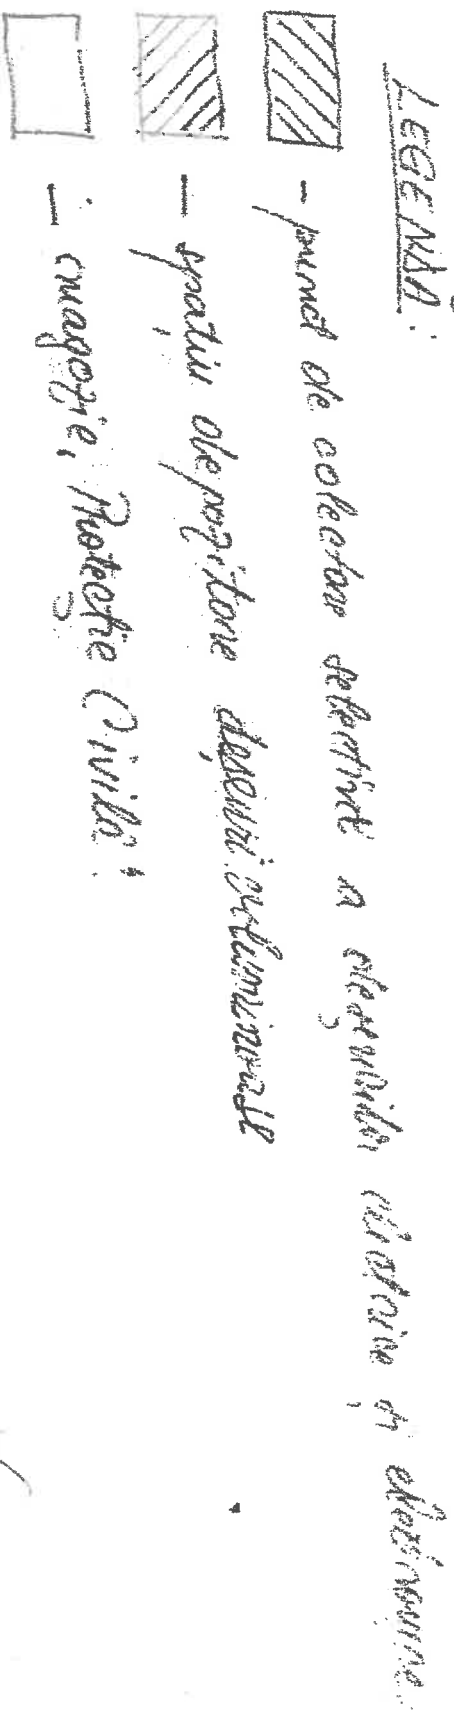 LEGENDĂ:
- punct de colectare selectivă a deșeurilor electrice și electronice
- spațiu depozitare deșeuri voluminoase
- magazie, Protecție Civilă: